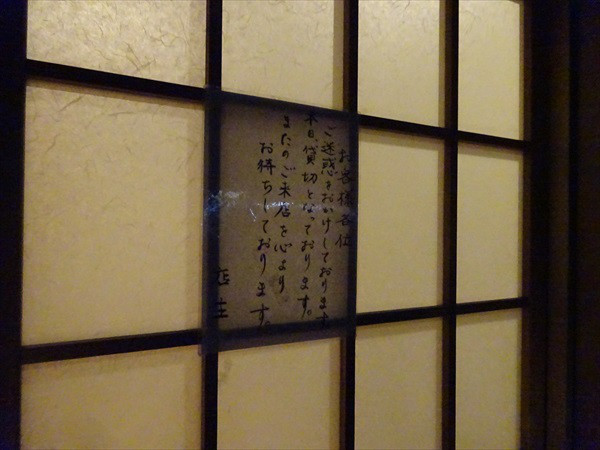 お客様各位
ご迷惑をおかけしております
本日、貸切となっております。
またのご来店を心より
お待ちしております。
店主